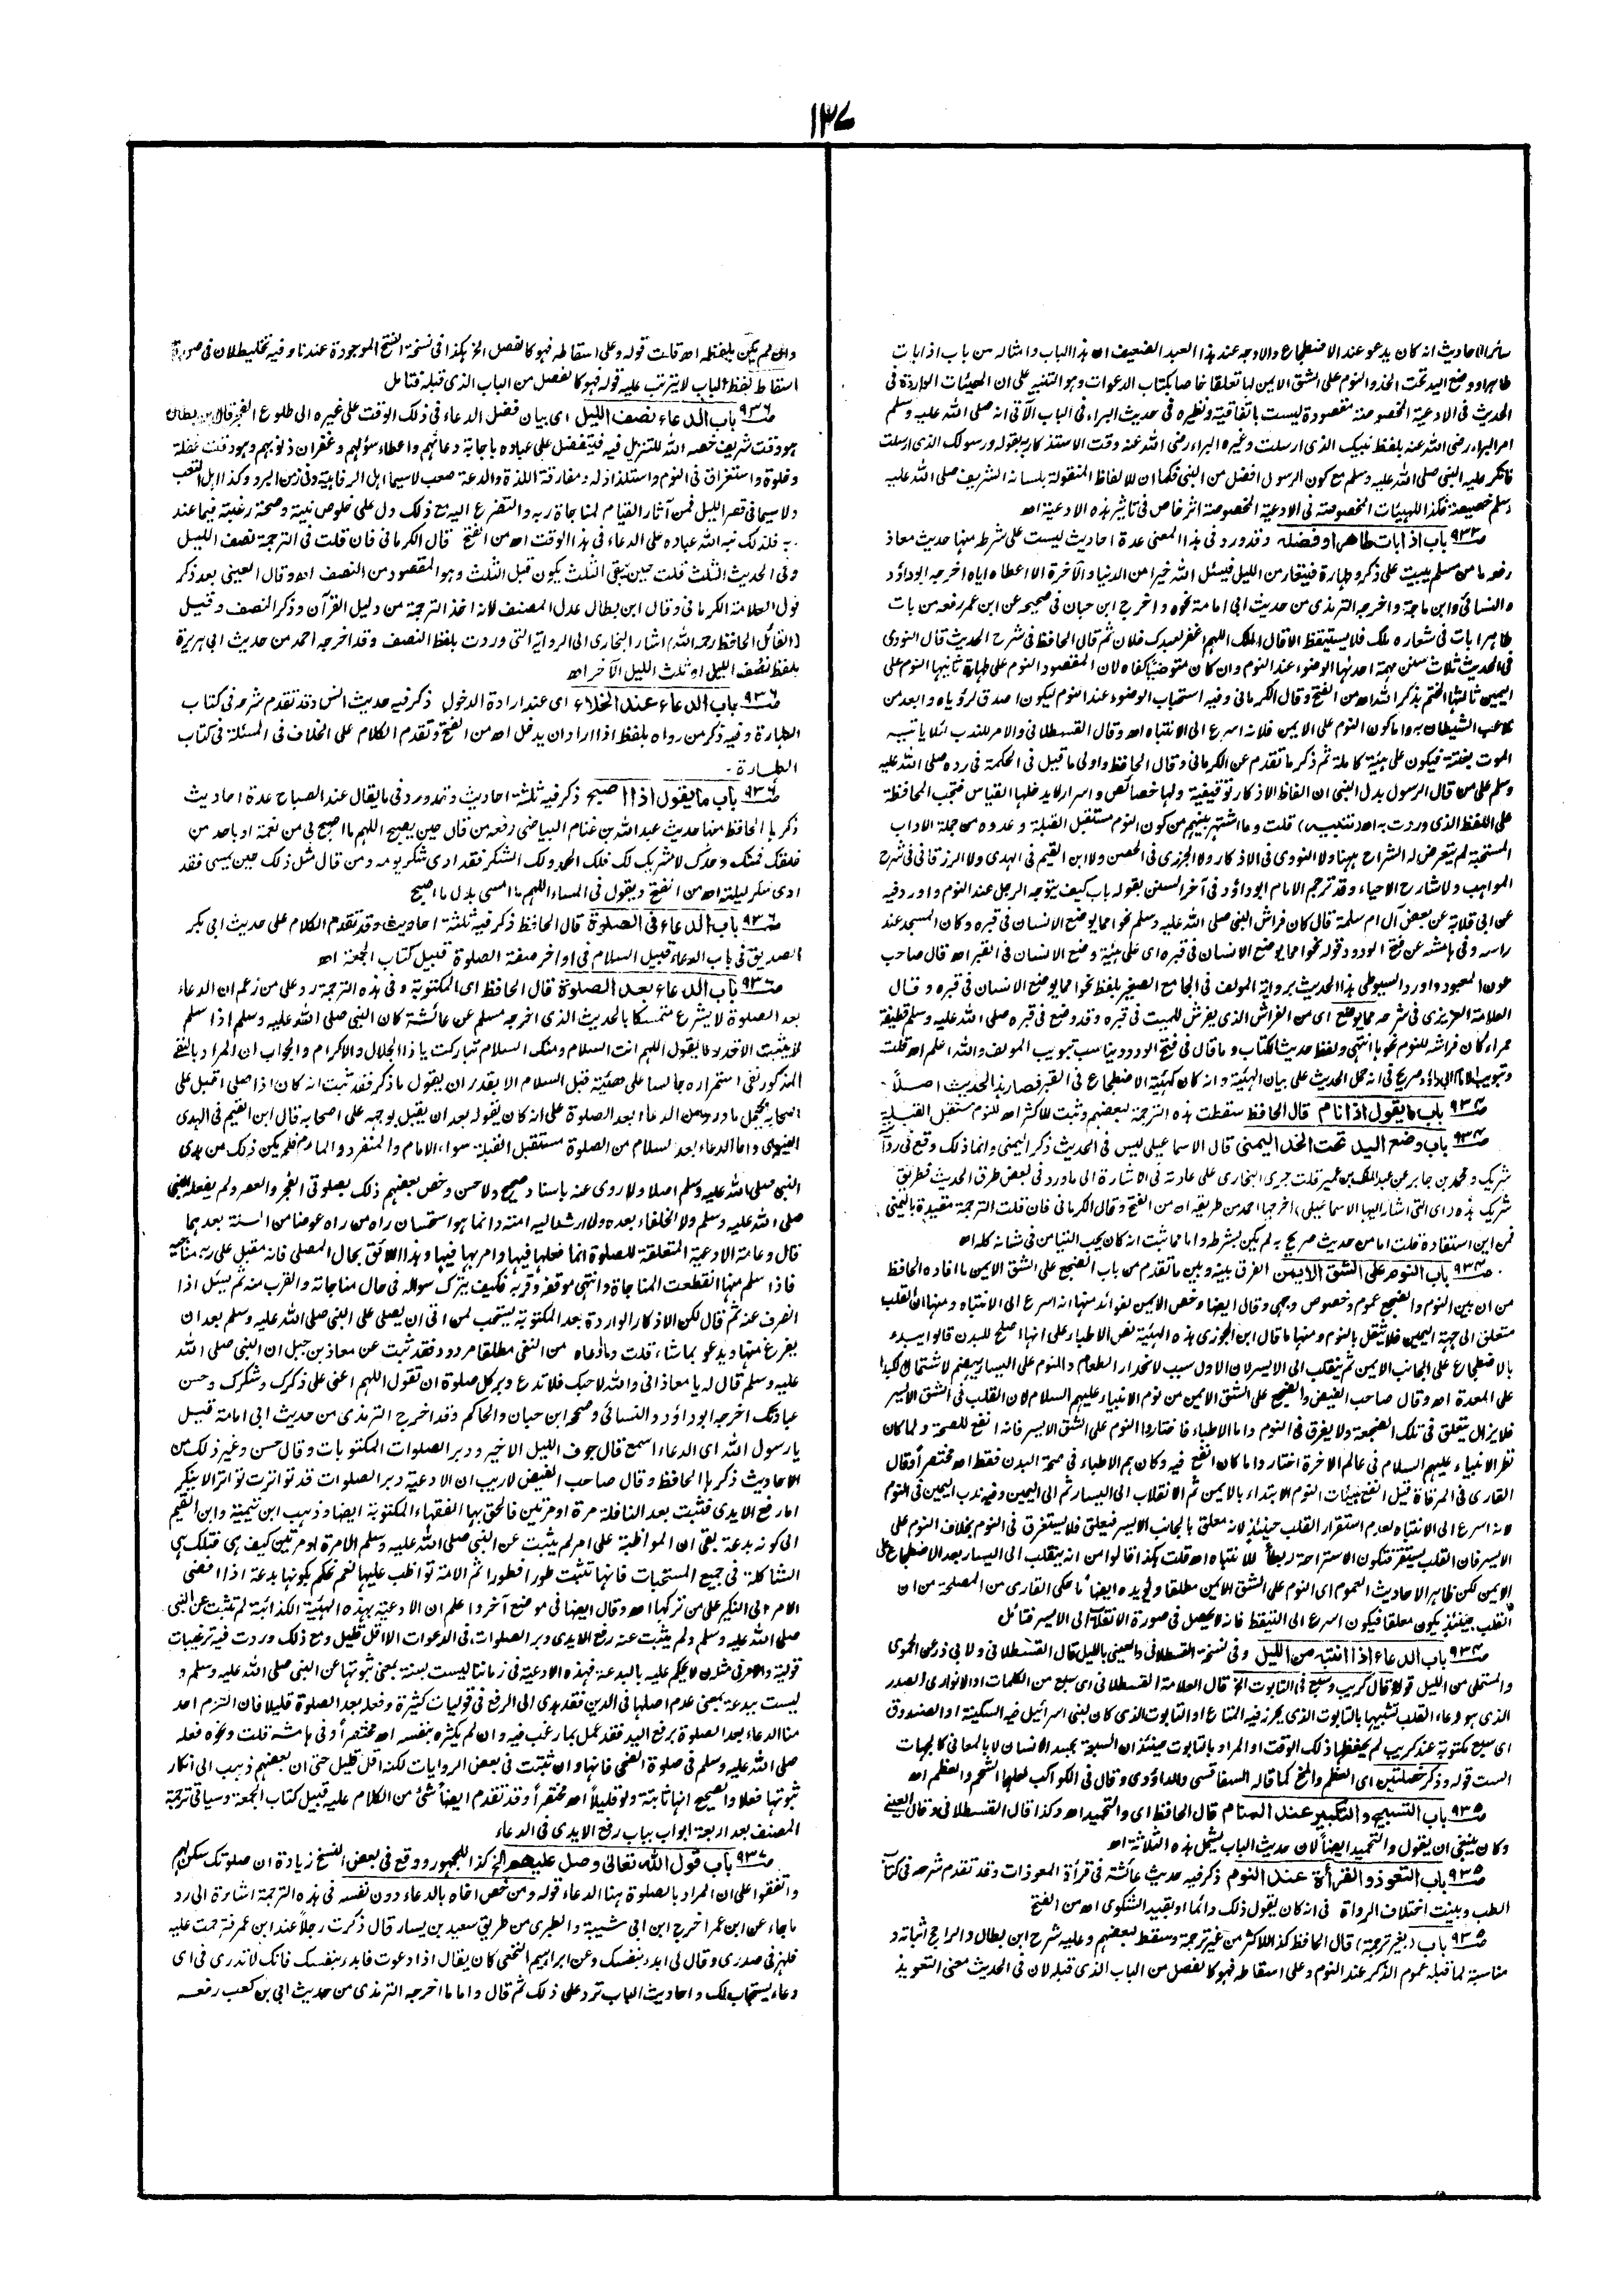 ١٣٧
سائر الاحاديث انه كان يدعو عند الاضطجاع والاوجه عند هذا العبد الضعيف ان هذا الباب وامثاله من باب اذا بات
طاهرا ووضع اليد تحت الخد والنوم على الشق الايمن لها تعلقا خاصا بكتاب الدعوات وهو التنبيه على ان الهيئات الواردة فى
الحديث فى الادعية المخصوصة مقصودة ليست باتفاقية ونظيره فى حديث البراء فى الباب الآتى انه صلى الله عليه وسلم
امر البراء رضى الله عنه بلفظ نبيك الذى ارسلت وغيره البراء رضى الله عنه وقت الاستذكار به بقوله ورسولك الذى ارسلت
فانكر عليه النبى صلى الله عليه وسلم مع كون الرسول افضل من النبى فكما ان للالفاظ المنقولة بلسانه الشريف صلى الله عليه
وسلم خصيصة فكذا للهيئات المخصوصة فى الادعية المخصوصة اثر خاص فى تاثير هذه الادعية اھ
صـ٩٣٣ باب اذا بات طاهرا وفضله وقد ورد فى هذا المعنى عدة احاديث ليست على شرطه منها حديث معاذ
رفعه ما من مسلم يبيت على ذكر وطهارة فيتعار من الليل فيسئل الله خيرا من الدنيا والآخرة الا اعطاه اياه اخرجه ابوداؤد
والنسائى وابن ماجة واخرجه الترمذى من حديث ابى امامة نحوه واخرج ابن حبان فى صحيحه عن ابن عمر رفعه من بات
طاهرا بات فى شعاره ملك فلا يستيقظ الا قال الملك اللهم اغفر لعبدك فلان ثم قال الحافظ فى شرح الحديث قال النووى
فى الحديث ثلاث سنن مهمة احدها الوضوء عند النوم وان كان متوضيئا كفاه لان المقصود النوم على طهارة ثانيها النوم على
اليمين ثالثها الختم بذكر الله اھ من الفتح وقال الكرمانى وفيه استحباب الوضوء عند النوم ليكون اصدق لرؤياه وابعد من
تلاعب الشيطان به واما كون النوم على الايمن فلانه اسرع الى الانتباه اھ وقال القسطلانى والامر للندب لئلا ياتيه
الموت بغتة فيكون على هيئة كاملة ثم ذكر ما تقدم عن الكرمانى وقال الحافظ واولى ما قيل فى الحكمة فى رده صلى الله عليه
وسلم على من قال الرسول بدل النبى ان الفاظ الاذكار توقيفية ولها خصائص واسرار لا يدخلها القياس فتجب المحافظة
على اللفظ الذى وردت به اھ (تنكيس) قلت وما اشتهر بينهم من كون النوم مستقبل القبلة وعدوه من جملة الاداب
المستحبة لم يتعرض له الشراح ههنا ولا النووى فى الاذكار ولا الجزرى فى الحصن ولا ابن القيم فى الهدى ولا الزرقانى فى شرح
المواهب ولا شارح الاحياء وقد ترجم الامام ابوداؤد فى آخر السنن بقوله باب كيف يتوجه الرجل عند النوم واورد فيه
عن ابى قلابة عن بعض آل ام سلمة قال كان فراش النبى صلى الله عليه وسلم نحوا مما يوضع الانسان فى قبره وكان المسجد عند
راسه وفى هامشه عن فتح الودود قوله نحوا مما يوضع الانسان فى قبره اى على هيئة وضع الانسان فى القبر اھ قال صاحب
عون المعبود واورد السيوطى هذا الحديث برواية المولف فى الجامع الصغير بلفظ نحوا مما يوضع الانسان فى قبره وقال
العلامة العزيزى فى شرحه مما يوضع اى من الفراش الذى يفرش للميت فى قبره وقد وضع فى قبره صلى الله عليه وسلم قطيفة
حمراء كان فراشه للنوم نحوها انتهى ولفظ حديث الكتاب وما قال فى فتح الودود يناسب تبويب المولف والله اعلم اھ قلت
وتبويب الامام ابى داؤد صريح فى انه حمل الحديث على بيان الهيئة وانه كان كهيئة الاضطجاع فى القبر فصار هذا الحديث اصلا
صـ٩٣٤ باب ما يقول اذا نام قال الحافظ سقطت هذه الترجمة لبعضهم وثبت للاكثر اھ للنوم مستقبل القبلة
صـ٩٣٤ باب وضع اليد تحت الخد اليمنى قال الاسماعيلى ليس فى الحديث ذكر اليمنى وانما ذلك وقع فى رواية
شريك ومحمد بن جابر عن عبد الملك بن عمير قلت جرى البخارى على عادته فى الاشارة الى ما ورد فى بعض طرق الحديث فطريق
شريك هذه (اى التى اشار اليها الاسماعيلى) اخرجها احمد من طريقه اھ من الفتح وقال الكرمانى فان قلت الترجمة مقيدة باليمنى
فمن اين استفاده قلت اما من حديث صريح به لم يكن بشرطه واما مما ثبت انه كان يحب التيامن فى شانه كله اھ
صـ٩٣٤ باب النوم على الشق الايمن الفرق بينه وبين ما تقدم من باب الضجع على الشق الايمن ما افاده الحافظ
من ان بين النوم والضجع عموم وخصوص وجهى وقال ايضا وخص الايمن لفوائد منها انه اسرع الى الانتباه ومنها ان القلب
متعلق الى جهة اليمين فلا يثقل بالنوم ومنها ما قال ابن الجوزى هذه الهيئة نص الاطباء على انها اصلح للبدن قالوا يبدء
بالاضطجاع على الجانب الايمن ثم ينقلب الى الايسر لان الاول سبب لانحدار الطعام والنوم على اليسار يهضم لاشتمال الكبد
على المعدة اھ وقال صاحب الفيض والضجع على الشق الايمن من نوم الانبياء عليهم السلام لان القلب فى الشق الايسر
فلا يزال يتعلق فى تلك الضجعة ولا يغرق فى النوم واما الاطباء فاختاروا النوم على الشق الايسر فانه انفع للصحة ولما كان
نظر الانبياء عليهم السلام فى عالم الآخرة اختاروا ما كان انفع فيه وكان هم الاطباء فى صحة البدن فقط اھ مختصرا وقال
القارى فى المرقاة قيل انفع هيئات النوم الابتداء بالايمن ثم الانقلاب الى اليسار ثم الى اليمين وفيه ندب اليمين فى النوم
لانه اسرع الى الانتباه لعدم استقرار القلب حينئذ لانه معلق بالجانب الايسر فيعلق فلا يستغرق فى النوم بخلاف النوم على
الايسر فان القلب يستقر فتكون الاستراحة له بطأ للانتباه اھ قلت هكذا قالوا من انه ينقلب الى اليسار بعد الاضطجاع على
الايمن لكن ظاهر الاحاديث العموم اى النوم على الشق الايمن مطلقا ويؤيده ايضا ما حكى القارى من المصلحة من ان
القلب حينئذ يكون معلقا فيكون اسرع الى التيقظ فانه لا يحصل فى صورة الانقلاب الى الايسر فتائل
صـ٩٣٤ باب الدعاء اذا انتبه من الليل وفى نسخة القسطلانى والعينى بالليل قال القسطلانى ولابى ذر عن الحموى
والمستملى من الليل قوله قال كريب وسبع فى التابوت الخ قال العلامة القسطلانى اى سبع من الكلمات او الانوار فى الصدر
الذى هو وعاء القلب تشبيها بالتابوت الذى يحرز فيه المتاع او التابوت الذى كان لبنى اسرائيل فيه السكينة او الصندوق
اى سبع مكتوبة عند كريب لم يحفظها ذلك الوقت او المراد بالتابوت حينئذ ان السبعة بجسد الانسان لا بالمعانى كالجهات
الست قوله وذكر خصلتين اى العظم والمخ كما قاله السفاقسى والداؤدى وقال فى الكواكب لعلها الشحم والعظم اھ
صـ٩٣٥ باب التسبيح والتكبير عند المنام قال الحافظ اى والتحميد اھ وكذا قال القسطلانى وقال العينى
وكان ينبغى ان يقول والتحميد ايضا لان حديث الباب يشمل هذه الثلاثة اھ
صـ٩٣٥ باب التعوذ والقرأة عند النوم ذكر فيه حديث عائشة فى قرأة المعوذات وقد تقدم شرحه فى كتاب
الطب وبينت اختلاف الرواة فى انه كان يقول ذلك دائما او بقيد الشكوى اھ من الفتح
صـ٩٣٥ باب (بغير ترجمة) قال الحافظ كذا للاكثر من غير ترجمة وسقط لبعضهم وعليه شرح ابن بطال والراجح اثباته و
مناسبة لما قبله عموم الذكر عند النوم وعلى اسقاطه فهو كالفصل من الباب الذى قبله لان فى الحديث معنى التعويذ
وان لم يكن بلفظه اھ قلت قوله وعلى اسقاطه فهو كالفصل الخ هكذا فى نسخة الفتح الموجودة عندنا وفيه تخليط لان فى صورة
اسقاط لفظ الباب لا يترتب عليه قوله فهو كالفصل من الباب الذى قبله فتامل
صـ٩٣٦ باب الدعاء نصف الليل اى بيان فضل الدعاء فى ذلك الوقت على غيره الى طلوع الفجر قال ابن بطال
هو وقت شريف خصه الله للتنزيل فيه فيتفضل على عباده باجابة دعائهم واعطاء سؤلهم وغفران ذنوبهم وهو وقت غفلة
وخلوة واستغراق فى النوم واستلذاذ له ومفارقة اللذة والدعة صعب لاسيما اهل الرفاهية وفى زمن البرد وكذا اهل التعب
ولاسيما فى قصر الليل فمن آثار القيام لمناجاة ربه والتضرع اليه مع ذلك دل على خلوص نيته وصحة رغبته فيما عند
ربه فلذلك نبه الله عباده على الدعاء فى هذا الوقت اھ من الفتح قال الكرمانى فان قلت فى الترجمة نصف الليل
وفى الحديث الثلث قلت حين يبقى الثلث يكون قبل الثلث وهو المقصود من النصف اھ وقال العينى بعد ذكر
قول العلامة الكرمانى وقال ابن بطال عدل المصنف لانه اخذ الترجمة من دليل القرآن وذكر النصف وقيل
(القائل الحافظ رحمه الله) اشار البخارى الى الرواية التى وردت بلفظ النصف وقد اخرجه احمد من حديث ابى هريرة
بلفظ نصف الليل او ثلث الليل الآخر اھ
صـ٩٣٦ باب الدعاء عند الخلاء اى عند ارادة الدخول ذكر فيه حديث انس وقد تقدم شرحه فى كتاب
الطهارة وفيه ذكر من رواه بلفظ اذا اراد ان يدخل اھ من الفتح وتقدم الكلام على الخلاف فى المسئلة فى كتاب
الطهارة۔
صـ٩٣٦ باب ما يقول اذا اصبح ذكر فيه ثلثة احاديث وقد ورد فى ما يقال عند الصباح عدة احاديث
ذكرها الحافظ منها حديث عبد الله بن غنام البياضى رفعه من قال حين يصبح اللهم ما اصبح بى من نعمة او باحد من
خلقك فمنك وحدك لا شريك لك فلك الحمد ولك الشكر فقد ادى شكر يومه ومن قال مثل ذلك حين يمسى فقد
ادى شكر ليلته اھ من الفتح ويقول فى المساء اللهم ما امسى بدل ما اصبح
صـ٩٣٦ باب الدعاء فى الصلوة قال الحافظ ذكر فيه ثلثة احاديث وقد تقدم الكلام على حديث ابى بكر
الصديق فى باب الدعاء قبيل السلام فى اواخر صفة الصلوة قبيل كتاب الجمعة اھ
صـ٩٣٦ باب الدعاء بعد الصلوة قال الحافظ اى المكتوبة وفى هذه الترجمة رد على من زعم ان الدعاء
بعد الصلوة لا يشرع متمسكا بالحديث الذى اخرجه مسلم عن عائشة كان النبى صلى الله عليه وسلم اذا سلم
لا يثبت الا قدر ما يقول اللهم انت السلام ومنك السلام تباركت يا ذا الجلال والاكرام والجواب ان المراد بالنفى
المذكور نفى استمراره جالسا على هيئته قبل السلام الا بقدر ان يقول ما ذكر فقد ثبت انه كان اذا صلى اقبل على
اصحابه فيحمل ما ورد من الدعاء بعد الصلوة على انه كان يقوله بعد ان يقبل بوجهه على اصحابه قال ابن القيم فى الهدى
النبوى واما الدعاء بعد السلام من الصلوة مستقبل القبلة سواء الامام والمنفرد والماموم فلم يكن ذلك من هدى
النبى صلى الله عليه وسلم اصلا ولا روى عنه باسناد صحيح ولا حسن وخص بعضهم ذلك بصلوتى الفجر والعصر ولم يفعله النبى
صلى الله عليه وسلم ولا الخلفاء بعده ولا ارشد اليه امته وانما هو استحسان راه من راه عوضا من السنة بعدهما
قال وعامة الادعية المتعلقة للصلوة انما فعلها فيها وامر بها فيها وهذا اللائق بحال المصلى فانه مقبل على ربه مناجيه
فاذا سلم منها انقطعت المناجاة وانتهى موقفه وقربه فكيف يترك سواله فى حال مناجاته والقرب منه ثم يسئل اذا
انصرف عنه ثم قال لكن الاذكار الواردة بعد المكتوبة يستحب لمن اتى ان يصلى على النبى صلى الله عليه وسلم بعد ان
يفرغ منها ويدعو بما شاء قلت وما ادعاه من النفى مطلقا مردود فقد ثبت عن معاذ بن جبل ان النبى صلى الله
عليه وسلم قال له يا معاذ انى والله لاحبك فلا تدع دبر كل صلوة ان تقول اللهم اعنى على ذكرك وشكرك وحسن
عبادتك اخرجه ابوداؤد والنسائى وصححه ابن حبان والحاكم وقد اخرج الترمذى من حديث ابى امامة قيل
يا رسول الله اى الدعاء اسمع قال جوف الليل الاخير ودبر الصلوات المكتوبات وقال حسن وغير ذلك من
الاحاديث ذكرها الحافظ وقال صاحب الفيض لاريب ان الادعية دبر الصلوات قد تواترت تواترا لا ينكر
اما رفع الايدى فثبت بعد النافلة مرة او مرتين فالحق بها الفقهاء المكتوبة ايضا وذهب ابن تيمية وابن القيم
الى كونه بدعة بقى ان المواظبة على امر لم يثبت عن النبى صلى الله عليه وسلم الا مرة او مرتين كيف هى فتلك هى
الشاكلة فى جميع المستحبات فانها تثبت طورا فطورا ثم الامة تواظب عليها نعم نحكم بكونها بدعة اذا افضى
الامر الى النكير على من تركها اھ وقال ايضا فى موضع آخر واعلم ان الادعية بهذه الهيئة الكذائية لم تثبت عن النبى
صلى الله عليه وسلم ولم يثبت عنه رفع الايدى دبر الصلوات فى الدعوات الا اقل قليل ومع ذلك وردت فيه ترغيبات
قولية والامر فى مثله ان لا يحكم عليه بالبدعة فهذه الادعية فى زماننا ليست بسنة بمعنى ثبوتها عن النبى صلى الله عليه وسلم و
ليست ببدعة بمعنى عدم اصلها فى الدين فقد هدى الى الرفع فى قوليات كثيرة وفعله بعد الصلوة قليلا فان التزم احد
منا الدعاء بعد الصلوة برفع اليد فقد عمل بما رغب فيه وان لم يكثره بنفسه اھ مختصرا وفى هامشه قلت ونحوه فعله
صلى الله عليه وسلم فى صلوة الضحى فانها وان ثبتت فى بعض الروايات لكنه اقل قليل حتى ان بعضهم ذهب الى انكار
ثبوتها فعلا والصحيح انها ثابتة ولو قليلا اھ مختصرا وقد تقدم ايضا شئ من الكلام عليه قبيل كتاب الجمعة وسياتى ترجمة
المصنف بعد اربعة ابواب بباب رفع الايدى فى الدعاء
صـ٩٣٧ باب قول الله تعالى وصل عليهم الخ كذا للجمهور ووقع فى بعض النسخ زيادة ان صلوتك سكن لهم
واتفقوا على ان المراد بالصلوة هنا الدعاء قوله ومن خص اخاه بالدعاء دون نفسه فى هذه الترجمة اشارة الى رد
ما جاء عن ابن عمر اخرج ابن ابى شيبة والطبرى من طريق سعيد بن يسار قال ذكرت رجلا عند ابن عمر فترحمت عليه
فلهز فى صدرى وقال لى ابدء بنفسك وعن ابراهيم النخعى كان يقال اذا دعوت فابدء بنفسك فانك لا تدرى فى اى
دعاء يستجاب لك واحاديث الباب ترد على ذلك ثم قال واما ما اخرجه الترمذى من حديث ابى بن كعب رفعه